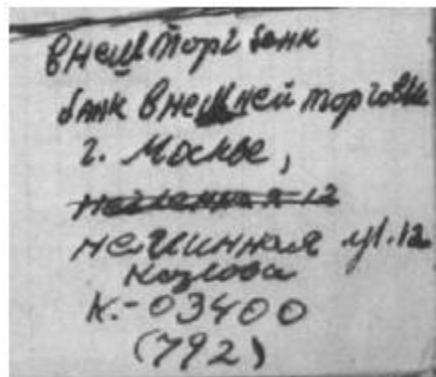 внешторгбанк
банк внешней торговли
г. Москве,
неглинная 12
неглинная ул. 12
козлова
К.-03400
(792)